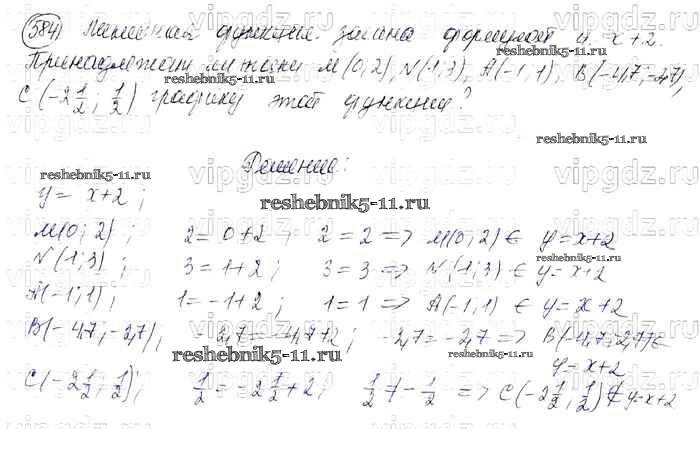 584) Линейная функция задана формулой y = x+2.
Принадлежат ли точки M(0; 2), N(1; 3), A(-1; 1), B(-4,7; -2,7),
C(-2 1/2; 1/2) графику этой функции?
reshebnik5-11.ru
Решение:
reshebnik5-11.ru
y = x+2;
reshebnik5-11.ru
M(0; 2); 2 = 0+2; 2 = 2 => M(0; 2) ∈ y = x+2
reshebnik5-11.ru
N(1; 3); 3 = 1+2; 3 = 3 => N(1; 3) ∈ y = x+2
A(-1; 1); 1 = -1+2; 1 = 1 => A(-1; 1) ∈ y = x+2
B(-4,7; -2,7); -2,7 = -4,7+2; -2,7 = -2,7 => B(-4,7; -2,7) ∈
reshebnik5-11.ru
y = x+2
C(-2 1/2; 1/2); 1/2 = -2 1/2 + 2; 1/2 ≠ -1/2 => C(-2 1/2; 1/2) ∉ y = x+2
vipgdz.ru